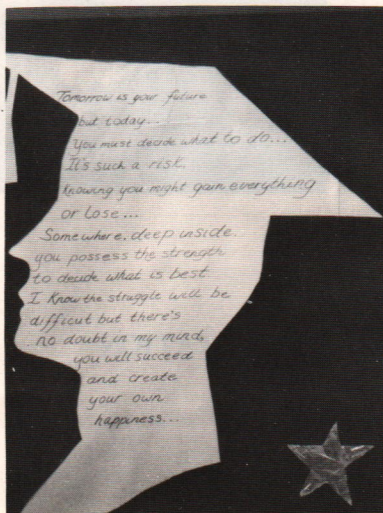 Tomorrow is your future
but today...
You must decide what to do...
It's such a risk.
Knowing you might gain everything
or Lose...
Somewhere, deep inside
you possess the strength
to decide what is best
I Know the struggle will be
difficut but there's
no doubt in my mind,
you will succeed
and create
your own
happiness...